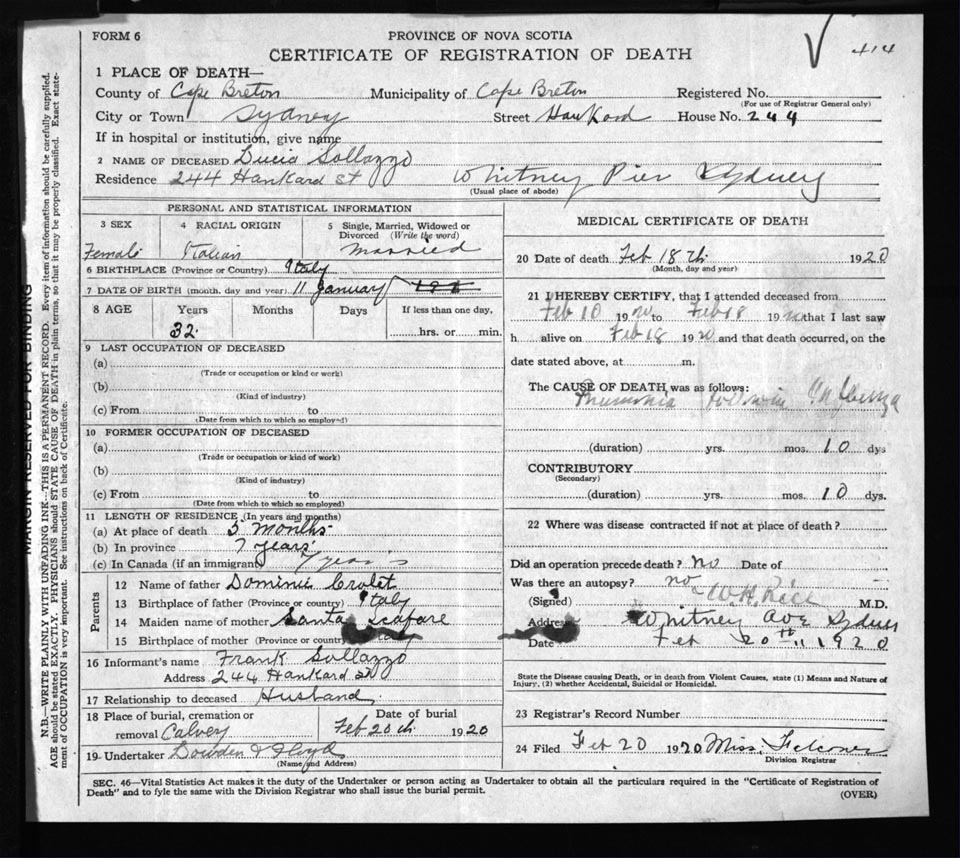 FORM 6
PROVINCE OF NOVA SCOTIA
414
CERTIFICATE OF REGISTRATION OF DEATH
1 PLACE OF DEATH—
County of Cape Breton Municipality of Cape Breton Registered No.
(For use of Registrar General only)
City or Town Sydney Street Hankard House No. 244
If in hospital or institution, give name
2 NAME OF DECEASED Lucia Sollazzo
Residence 244 Hankard St Whitney Pier Sydney
(Usual place of abode)
PERSONAL AND STATISTICAL INFORMATION
3 SEX 4 RACIAL ORIGIN 5 Single, Married, Widowed or Divorced (Write the word)
Female Italian Married
6 BIRTHPLACE (Province or Country) Italy
7 DATE OF BIRTH (month, day and year) 11 January
8 AGE Years Months Days If less than one day,
32 hrs. or min.
9 LAST OCCUPATION OF DECEASED
(a)
(Trade or occupation or kind or work)
(b)
(Kind of industry)
(c) From to
(Date from which to which so employed)
10 FORMER OCCUPATION OF DECEASED
(a)
(Trade or occupation or kind of work)
(b)
(Kind of industry)
(c) From to
(Date from which to which so employed)
11 LENGTH OF RESIDENCE (In years and months)
(a) At place of death 5 Months
(b) In province 7 years
(c) In Canada (if an immigrant) 7 years
Parents
12 Name of father Dominic
13 Birthplace of father (Province or country) Italy
14 Maiden name of mother Santa
15 Birthplace of mother (Province or country) Italy
16 Informant's name Frank Sollazzo
Address 244 Hankard St
17 Relationship to deceased Husband
18 Place of burial, cremation or removal Calvery Date of burial Feb 20th 1920
19 Undertaker Lowden & Floyd
(Name and Address)
MEDICAL CERTIFICATE OF DEATH
20 Date of death Feb 18th 1920
(Month, day and year)
21 I HEREBY CERTIFY, that I attended deceased from
Feb 10 1920 to Feb 18 1920 that I last saw
h alive on Feb 18 1920 and that death occurred, on the
date stated above, at m.
The CAUSE OF DEATH was as follows:
Pneumonia Influenza
(duration) yrs. mos. 10 dys
CONTRIBUTORY
(Secondary)
(duration) yrs. mos. 10 dys.
22 Where was disease contracted if not at place of death?
Did an operation precede death? no Date of
Was there an autopsy? no
(Signed) W.H. Rice M.D.
Address Whitney Ave Sydney
Date Feb 20th 1920
State the Disease causing Death, or in death from Violent Causes, state (1) Means and Nature of
Injury, (2) whether Accidental, Suicidal or Homicidal.
23 Registrar's Record Number
24 Filed Feb 20 1920 Miss Falconer
Division Registrar
SEC. 46—Vital Statistics Act makes it the duty of the Undertaker or person acting as Undertaker to obtain all the particulars required in the "Certificate of Registration of
Death" and to fyle the same with the Division Registrar who shall issue the burial permit.
(OVER)
MARGIN RESERVED FOR BINDING
N.B.—WRITE PLAINLY WITH UNFADING INK—THIS IS A PERMANENT RECORD. Every item of information should be carefully supplied.
AGE should be stated EXACTLY. PHYSICIANS should STATE CAUSE OF DEATH in plain terms, so that it may be properly classified. Exact state-
ment of OCCUPATION is very important. See instructions on back of Certificate.